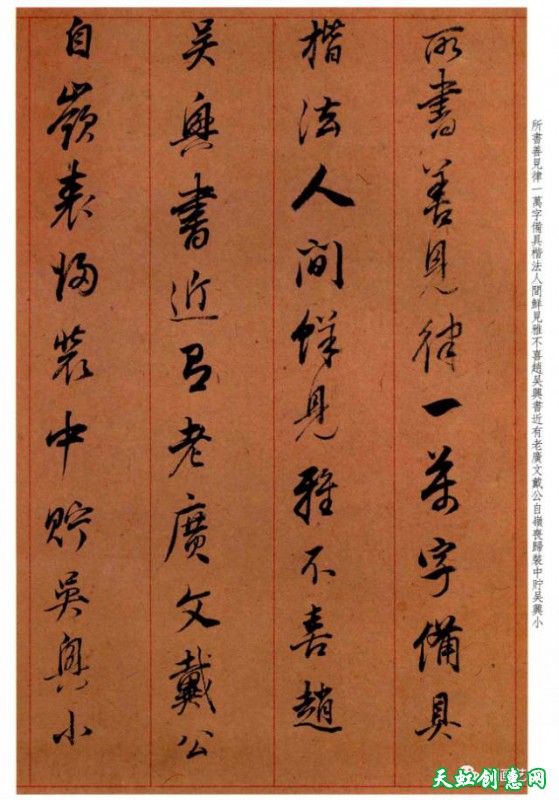 所書善見律一萬字備具楷法人間鮮見雅不喜趙吳興書近有老廣文戴公自嶺喪歸裝中貯吳興小
所書善見律一萬字備具
楷法人間鮮見雅不喜趙
吳興書近有老廣文戴公
自嶺表歸裝中貯吳興小
天虹创惠网